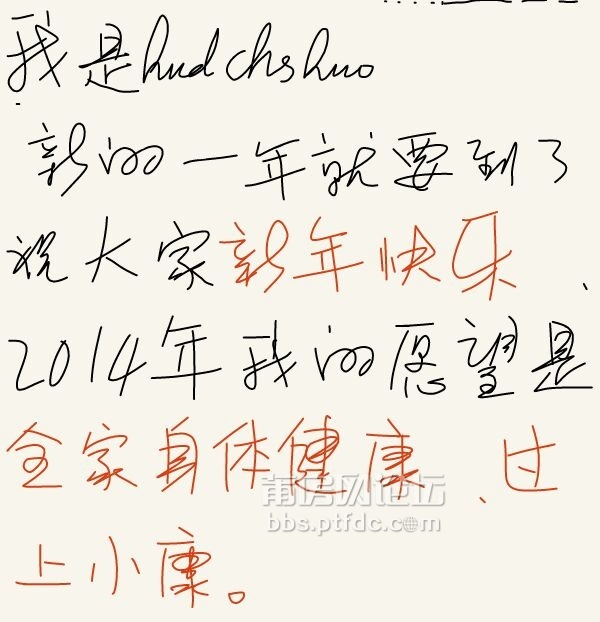 我是hudchshuo
新的一年就要到了
祝大家新年快乐、
2014年我的愿望是
全家身体健康、过
上小康。
莆房网论坛
bbs.ptfdc.com